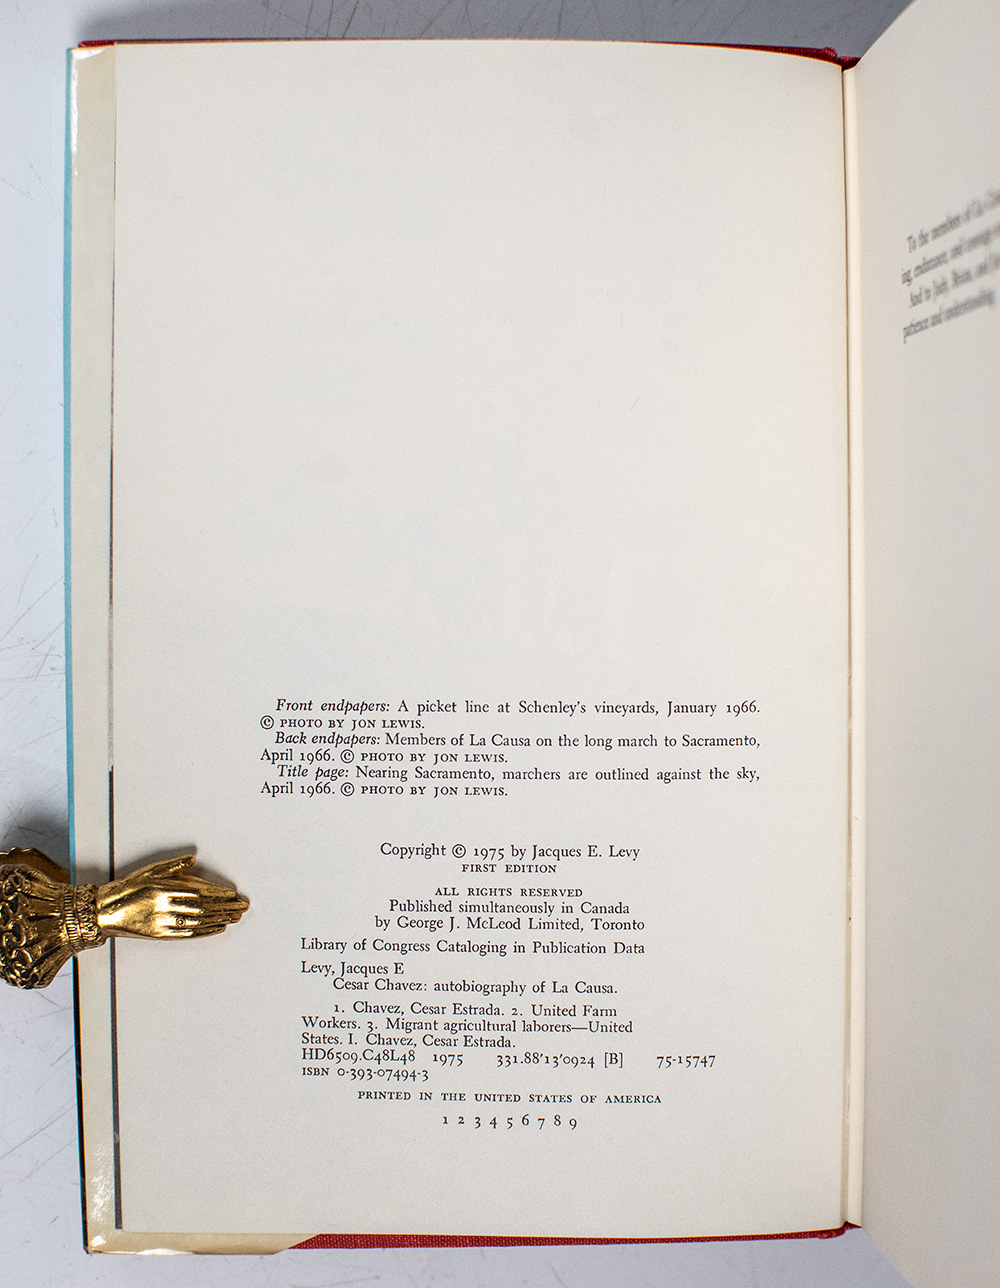 Front endpapers: A picket line at Schenley's vineyards, January 1966.
© PHOTO BY JON LEWIS.
Back endpapers: Members of La Causa on the long march to Sacramento,
April 1966. © PHOTO BY JON LEWIS.
Title page: Nearing Sacramento, marchers are outlined against the sky,
April 1966. © PHOTO BY JON LEWIS.
Copyright © 1975 by Jacques E. Levy
FIRST EDITION
ALL RIGHTS RESERVED
Published simultaneously in Canada
by George J. McLeod Limited, Toronto
Library of Congress Cataloging in Publication Data
Levy, Jacques E
Cesar Chavez: autobiography of La Causa.
1. Chavez, Cesar Estrada. 2. United Farm
Workers. 3. Migrant agricultural laborers—United
States. I. Chavez, Cesar Estrada.
HD6509.C48L48 1975 331.88'13'0924 [B] 75-15747
ISBN 0-393-07494-3
PRINTED IN THE UNITED STATES OF AMERICA
1 2 3 4 5 6 7 8 9
To the members of La
ing, endurance, and courage
And to Judy, Brian, and
patience and understanding